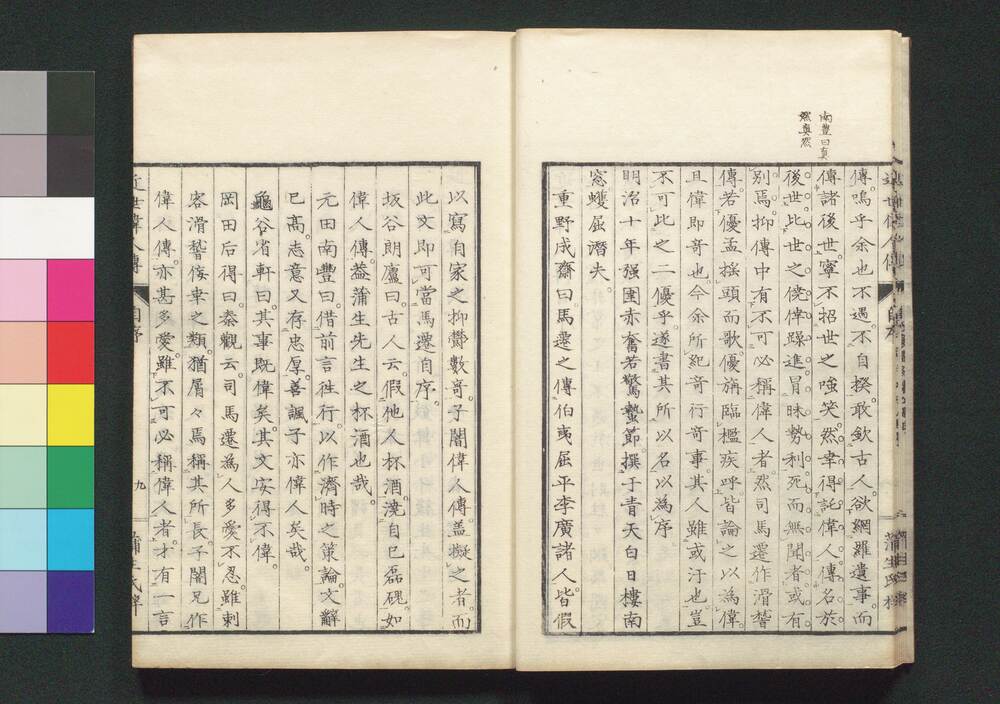 南豊曰真
然真然
傳嗚乎余也不遇不自揆敢欽古人欲網羅遺事而
傳諸後世寧不招世之嗤笑然幸得託偉人傳名於
後世比世之僥倖躁進冒昧勢利死而無聞者或有
別焉抑傳中有不可必稱偉人者然司馬遷作滑稽
傳若優孟揺頭而歌優旃臨檻疾呼皆論之以為偉
且偉即奇也今余所紀奇行奇事其人雖或汙也豈
不可比之二優乎遂書其所以名以為序
明治十年强圉赤奮若驚蟄節撰于青天白日樓南
窓蠖屈潛夫
重野成齋曰馬遷之傳伯夷屈平李廣諸人皆假
以寫自家之抑鬱數奇子闇偉人傳蓋擬之者而
此文即可當馬遷自序
坂谷朗廬曰古人云假他人杯酒澆自己磊磈如
偉人傳蓋蒲生先生之杯酒也哉
元田南豐曰借前言徃行以作濟時之策論文辭
已高志意又存忠厚善諷子亦偉人矣哉
龜谷省軒曰其事既偉矣其文安得不偉
岡田后得曰秦觀云司馬遷為人多愛不忍雖刺
客滑稽佞幸之類猶屑々焉稱其所長子闇兄作
偉人傳亦甚多愛雖不可必稱偉人者才有一言
近世偉人傳
自序
九
蒲生氏梓